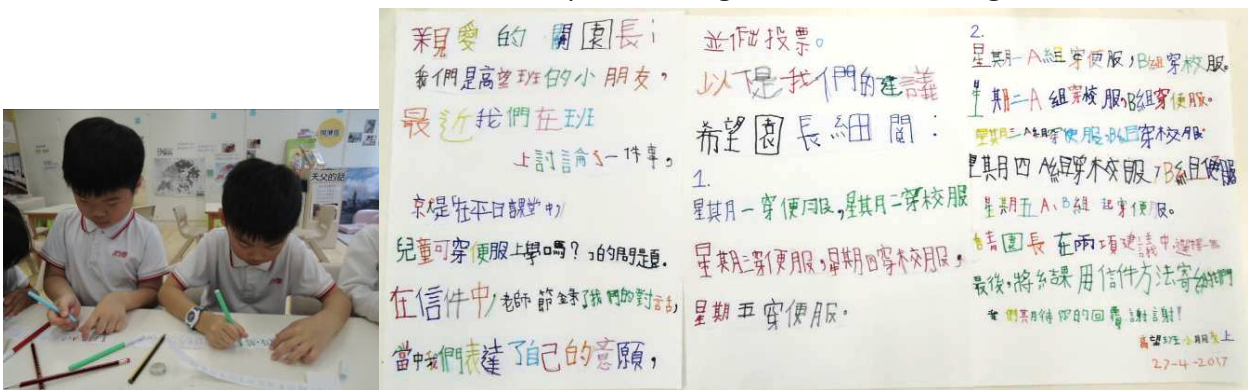 天父的話
親愛的關園長：
我們是高望班的小朋友，
最近我們在班
上討論了一件事，
就是「在平日課堂中，
兒童可穿便服上學嗎？」的問題.
在信件中，老師節錄了我們的對話，
當中我們表達了自己的意願，
並作出投票。
以下是我們的建議
希望園長細閱：
1.
星期一穿便服，星期二穿校服
星期三穿便服，星期四穿校服，
星期五穿便服。
2.
星期一A組穿便服，B組穿校服。
星期二A組穿校服，B組穿便服。
星期三A組穿便服，B組穿校服
星期四A組穿校服，B組便服
星期五A、B組一起穿便服。
請園長在兩項建議中，選擇一項
最後，將結果用信件方法寄給我們
我們期待你的回覆，謝謝！
高望班小朋友上
27-4-2017